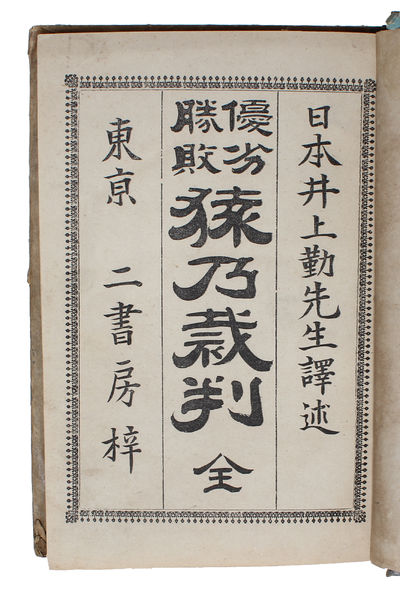 日本井上勤先生譯述
優勝
劣敗
猿乃裁判 全
東亰 二書房梓